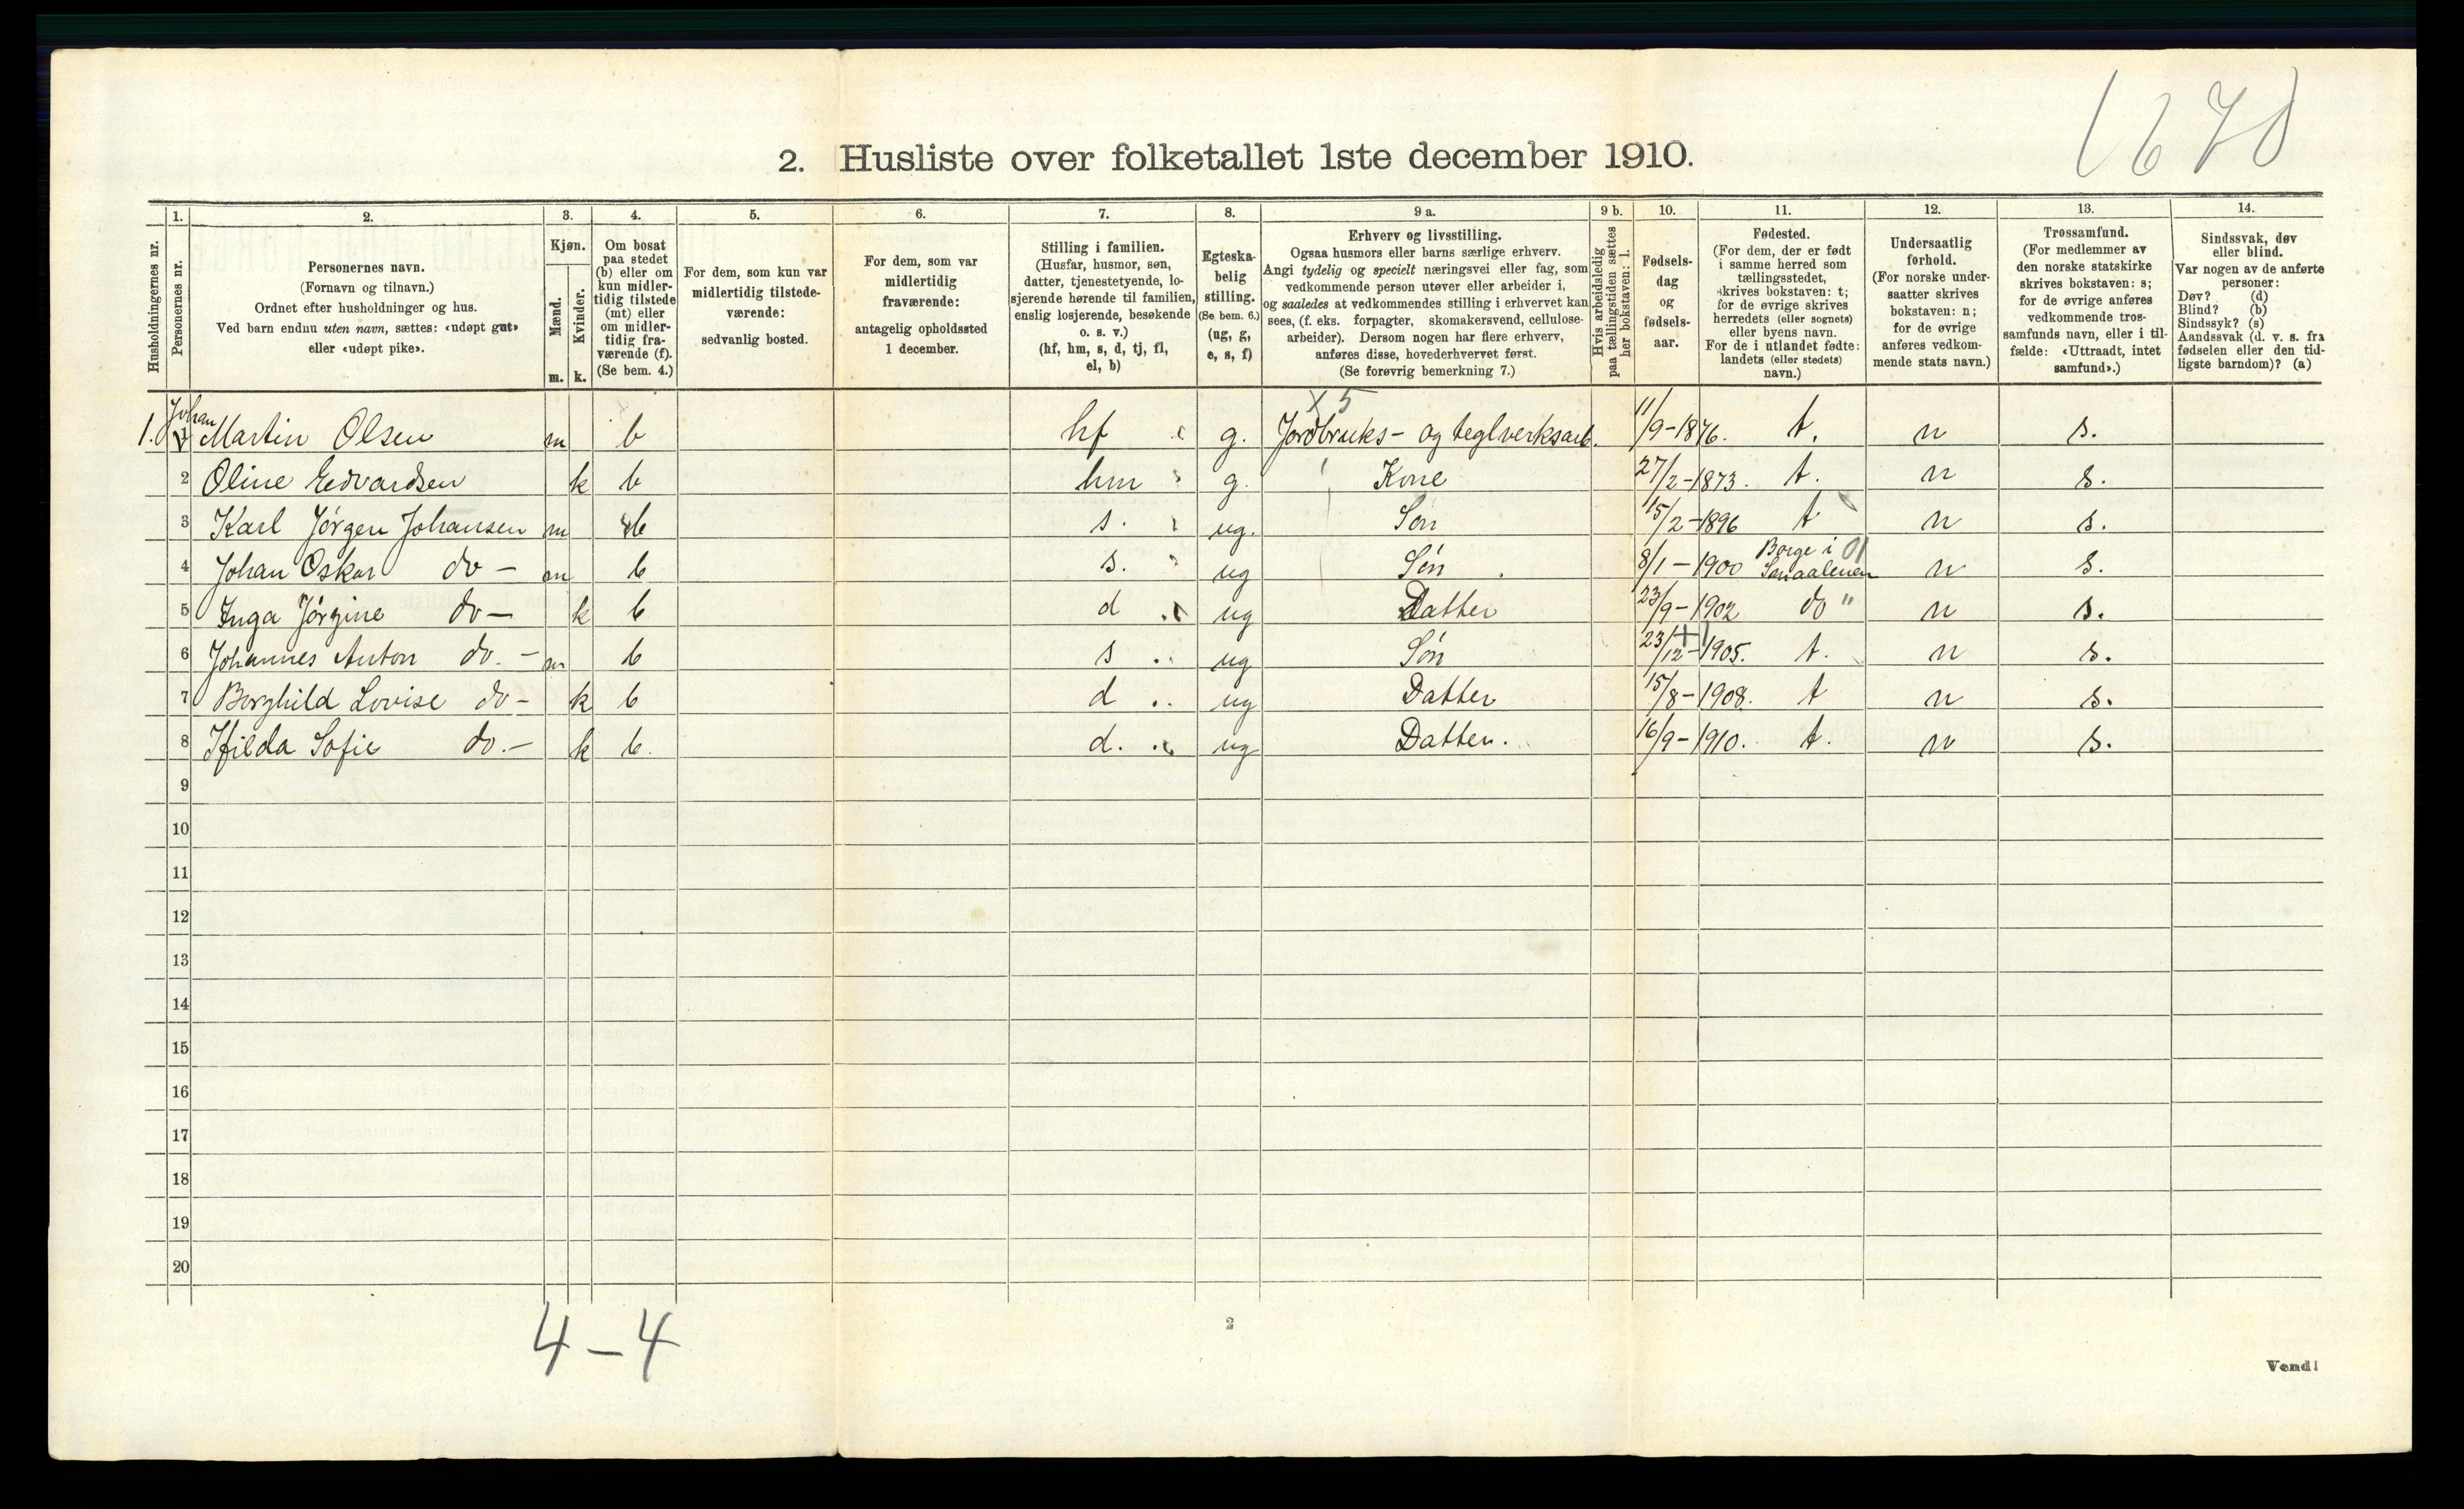 1670
2. Husliste over folketallet 1ste december 1910.
Husholdningernes nr.
1. Personernes nr.
2. Personernes navn. (Fornavn og tilnavn.) Ordnet efter husholdninger og hus. Ved barn endnu uten navn, sættes: «udøpt gut» eller «udøpt pike».
3. Kjøn. Mænd. m. Kvinder. k.
4. Om bosat paa stedet (b) eller om kun midlertidig tilstede (mt) eller om midlertidig fraværende (f). (Se bem. 4.)
5. For dem, som kun var midlertidig tilstedeværende: sedvanlig bosted.
6. For dem, som var midlertidig fraværende: antagelig opholdssted 1 december.
7. Stilling i familien. (Husfar, husmor, søn, datter, tjenestetyende, losjerende hørende til familien, enslig losjerende, besøkende o. s. v.) (hf, hm, s, d, tj, fl, el, b)
8. Egteskabelig stilling. (Se bem. 6.) (ug, g, e, s, f)
9 a. Erhverv og livsstilling. Ogsaa husmors eller barns særlige erhverv. Angi tydelig og specielt næringsvei eller fag, som vedkommende person utøver eller arbeider i, og saaledes at vedkommendes stilling i erhvervet kan sees, (f. eks. forpagter, skomakersvend, cellulosearbeider). Dersom nogen har flere erhverv, anføres disse, hovederhvervet først. (Se forøvrig bemerkning 7.)
9 b. Hvis arbeidsledig paa tællingstiden sættes her bokstaven: l.
10. Fødselsdag og fødselsaar.
11. Fødested. (For dem, der er født i samme herred som tællingsstedet, skrives bokstaven: t; for de øvrige skrives herredets (eller sognets) eller byens navn. For de i utlandet fødte: landets (eller stedets) navn.)
12. Undersaatlig forhold. (For norske undersaatter skrives bokstaven: n; for de øvrige anføres vedkommende stats navn.)
13. Trossamfund. (For medlemmer av den norske statskirke skrives bokstaven: s; for de øvrige anføres vedkommende trossamfunds navn, eller i tilfælde: «Uttraadt, intet samfund».)
14. Sindssvak, døv eller blind. Var nogen av de anførte personer: Døv? (d) Blind? (b) Sindssyk? (s) Aandssvak (d. v. s. fra fødselen eller den tidligste barndom)? (a)
x 5
1. 1 Johan Martin Olsen m b hf g. Jordbruks- og teglverksarb. 11/9-1876. t. n s.
2 Oline Edvardsen k b hm g. Kone 27/2-1873. t. n s.
3 Karl Jørgen Johansen m b s. ug. Søn 15/2-1896 t n s.
4 Johan Oskar do - m b s. ug Søn 8/1-1900 Borge i Smaalenen 01 n s.
5 Inga Jørgine do - k b d ug Datter 23/9-1902 do " n s.
6 Johannes Anton do. - m b s ug Søn 23/12-1905. t. n s.
7 Borghild Lovise do - k b d ug Datter 15/8-1908. t n s.
8 Hilda Sofie do. - k b. d. ug Datter. 16/9-1910. t. n s.
9
10
11
12
13
14
15
16
17
18
19
20
4-4
2
Vend!